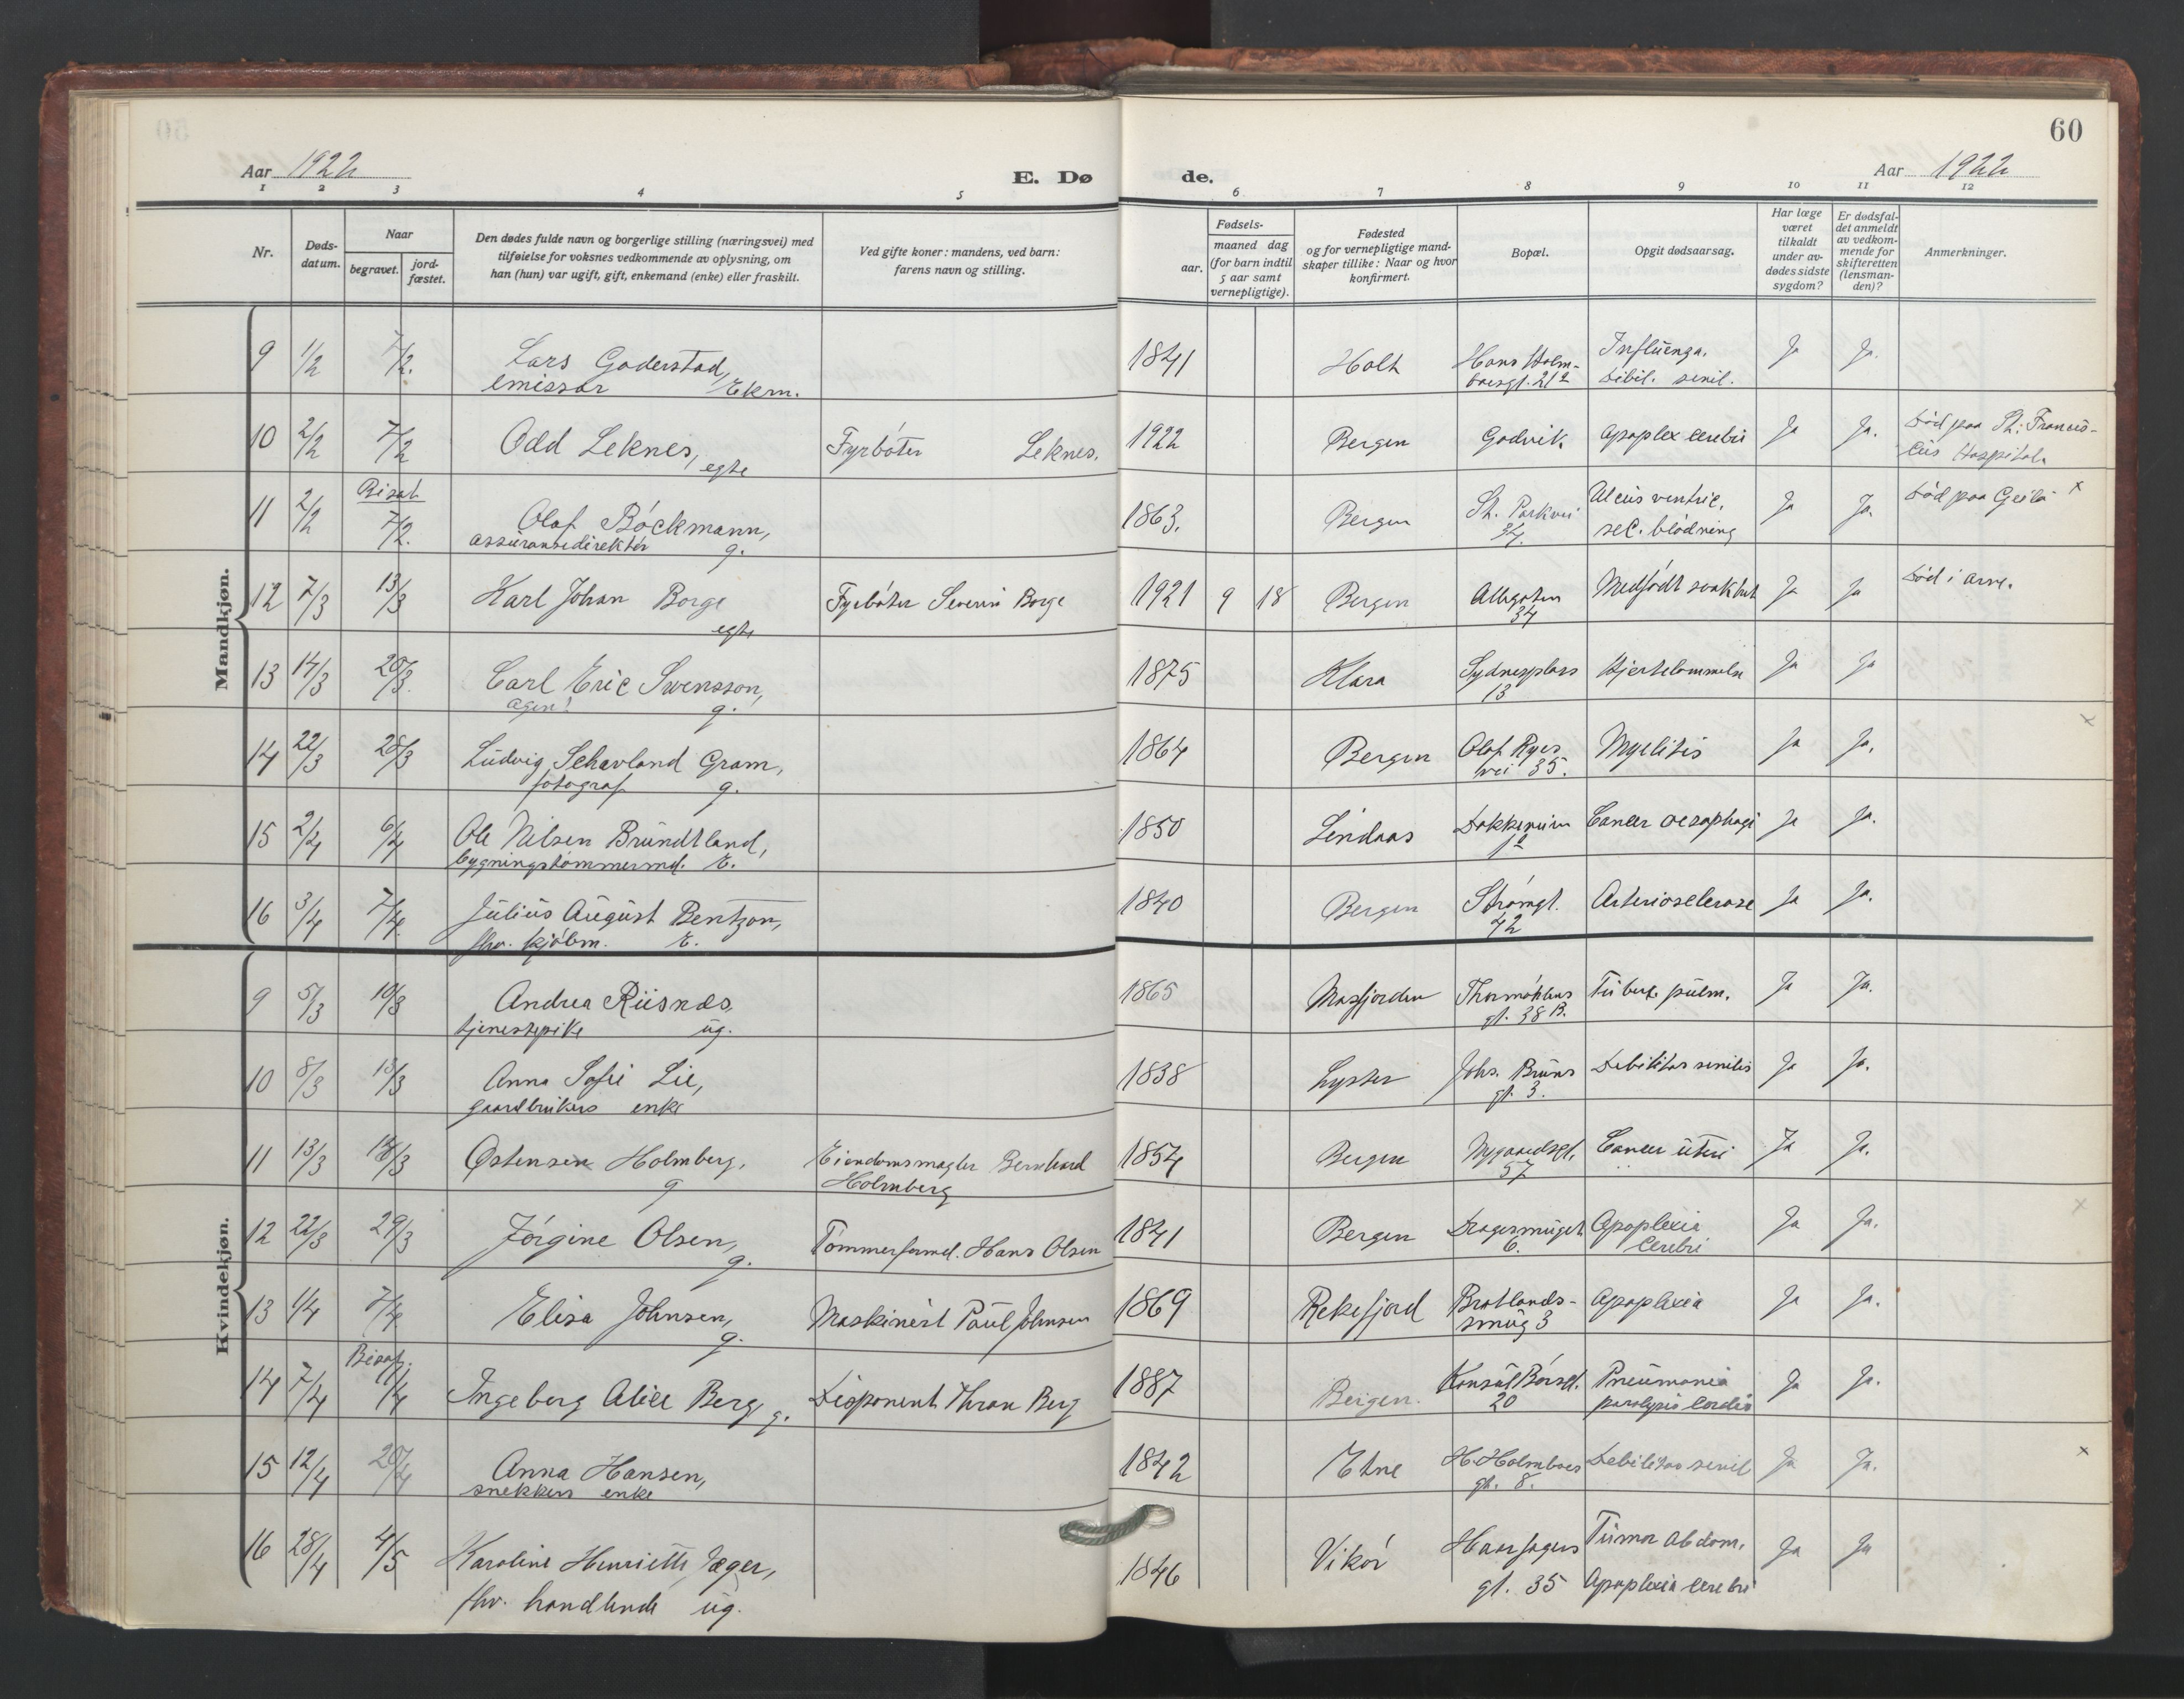 60
Aar 1922
E. Dø de.
Aar 1922
1 2 3 4 5 6 7 8 9 10 11 12
Nr.
Døds-datum.
Naar
begravet.
jord-fæstet.
Den dødes fulde navn og borgerlige stilling (næringsvei) med
tilføielse for voksnes vedkommende av oplysning, om
han (hun) var ugift, gift, enkemand (enke) eller fraskilt.
Ved gifte koner: mandens, ved barn:
farens navn og stilling.
Fødsels-
aar.
maaned dag
(for barn indtil
5 aar samt
vernepligtige).
Fødested
og for vernepligtige mand-
skaper tillike: Naar og hvor
konfirmert.
Bopæl.
Opgit dødsaarsag.
Har læge
været
tilkaldt
under av-
dødes sidste
sygdom?
Er dødsfal-
det anmeldt
av vedkom-
mende for
skifteretten
(lensman-
den)?
Anmerkninger.
Mandkjøn.
9 1/2 7/2. Lars Goderstad, 1841 Holt Hans Holm- Influenza. Ja Ja.
emissær Ekm. boesgt. 21a debil. senil.
10 2/2 7/2 Odd Leknes, Fyrbøter Leknes. 1922 Bergen Godvik Apoplex cerebri Ja Ja. Død paa St. Francis-
egte cus Hospital.
Bisat
11 2/2 7/2. Olaf Böckmann, 1863. Bergen St. Parkvei Ulcus ventric. Ja Ja. Død paa Geilo x
assüransedirektör g. 34. sec. blödning
12 7/3 13/3 Karl Johan Borge Fyrböter Severin Borge 1921 9 18 Bergen Allegaten Medfödt svakhet Ja Ja Död i Arne.
egte 34
13 14/3 20/3. Carl Eric Swensson, 1875 Klara Sydnesplass Hjertelammelse Ja Ja
agent g. 13
14 22/3 28/3 Lüdvig Schavland Gram, 1864 Bergen Olaf Ryes Myelitis Ja Ja. x
fotograf g. vei 35.
15 2/4 6/4 Ole Nilsen Bründtland, 1850 Lindaas Dokkeveien Cancer oesophagi Ja Ja.
bygningstømmermd. E. 1a
16 3/4 7/4. Jülius Aügüst Bentzon, 1840 Bergen Strömgt. Arteriosclerose Ja Ja.
fhv. kjøbm. E. 42
Kvindekjøn.
9 5/3 10/3 Andrea Riisnæs, 1865 Masfjorden Thormøhlens Tüberk. pülm. Ja Ja.
tjenestepike üg. gt. 38 B.
10 8/3 13/3 Anna Sofie Lie, 1838 Lyster Johs. Brüns Debilitas senilis Ja Ja.
gaardbrukers enke gt. 3.
11 13/3 18/3 Østensen Holmberg, Eiendomsmægler Bernhard 1854 Bergen Nygaardsgt. Cancer üteri Ja Ja.
g Holmberg 57
12 22/3 29/3 Jörgine Olsen, Tømmerformd. Hans Olsen 1841 Bergen Dragesmüget Apoplexia Ja Ja. x
g. 6. cerebri
13 1/4 7/4 Elisa Johnsen, Maskinist Paül Johnsen 1869 Rekefjord Bratlands- Apoplexia Ja Ja.
g. smüg 3
Bisat.
14 7/4 11/4 Ingeborg Alice Berg g. Disponent Thron Berg 1887 Bergen. Konsül Börsgt. Pneümonia Ja Ja.
20 paralysis cordis
15 12/4 20/4 Anna Hansen, 1842 Etne H. Holmboes Debilitas senil Ja Ja. x
snekkers enke gt. 8.
16 28/4 4/5 Karoline Henriette Jæger, 1846 Vikör Haarfagers Tümor abdom. Ja Ja
fhv. handlende üg. gt. 35 Apoplexia cerebri